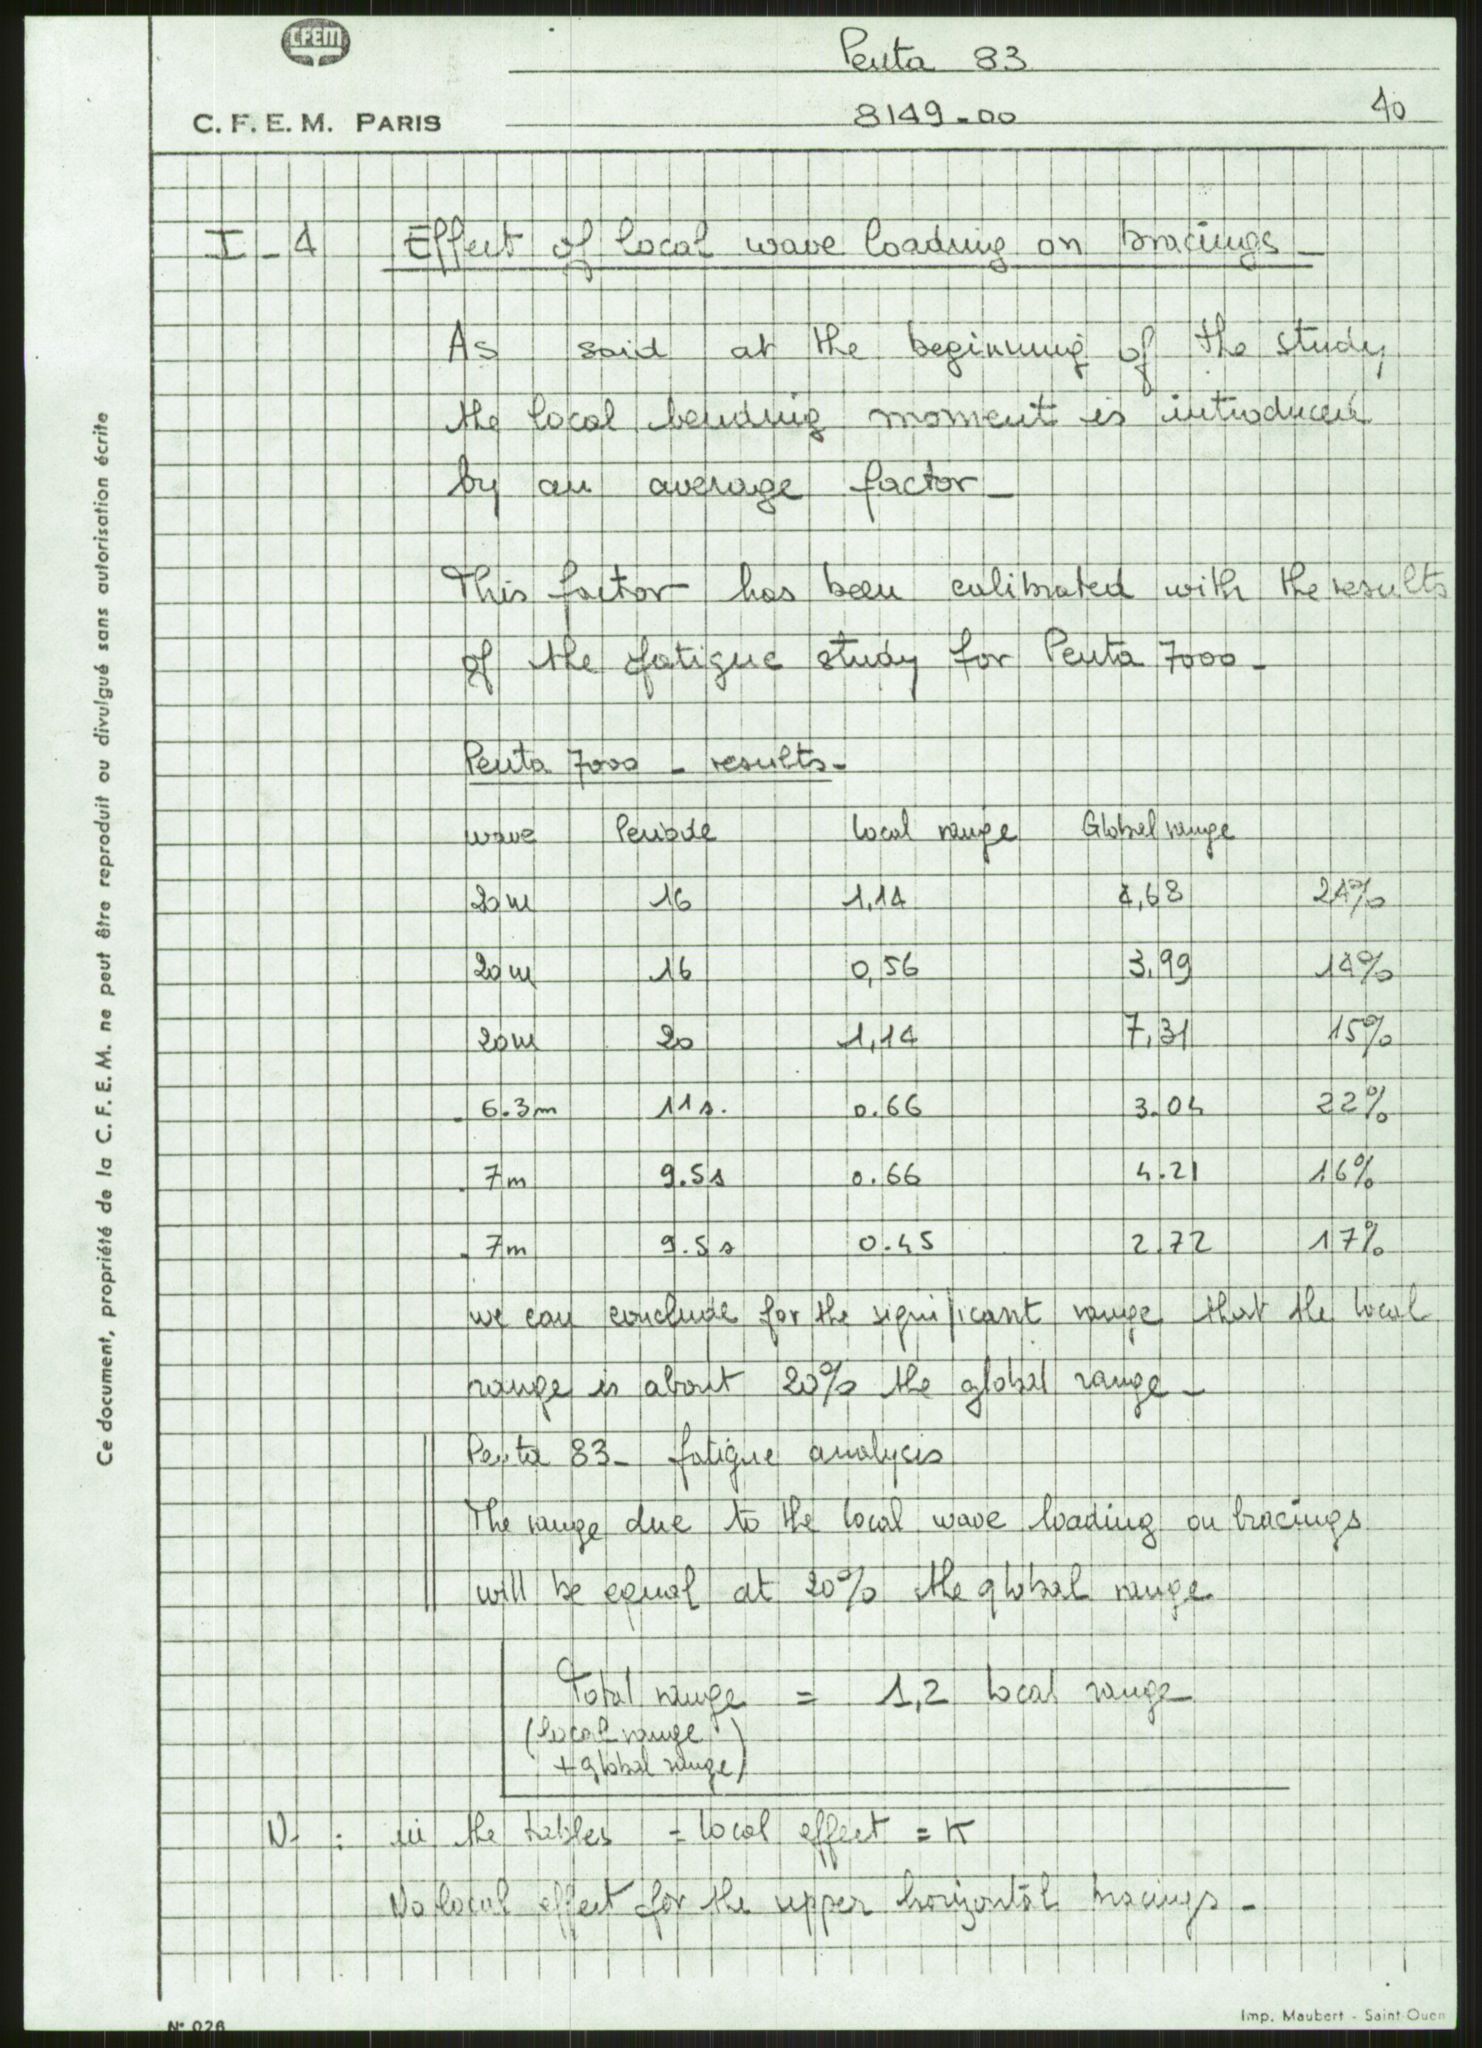 CFEM
Penta 83
C. F. E. M. PARIS
8149-00
40
I - 4 Effect of local wave loading on bracings -
As said at the beginning of the study,
the local bending moment is introduced
by an average factor -
This factor has been calibrated with the results
of the fatigue study for Penta 7000 -
Penta 7000 - results -
wave Periode local range Global range
20m 16 1,14 4,68 24%
20m 16 0,56 3,99 14%
20m 20 1,14 7,31 15%
. 6.3m 11s. 0.66 3.04 22%
. 7m 9.5s 0.66 4.21 16%
. 7m 9.5s 0.45 2.72 17%
we can conclude for the significant range that the local
range is about 20% the global range -
Penta 83 - fatigue analysis
The range due to the local wave loading on bracings
will be equal at 20% the global range
Total range = 1,2 local range
(local range
+ global range)
N : in the tables = local effect = K
No local effect for the upper horizontal bracings -
Ce document, propriété de la C. F. E. M. ne peut être reproduit ou divulgué sans autorisation écrite
N° 026
Imp. Maubert - Saint-Ouen